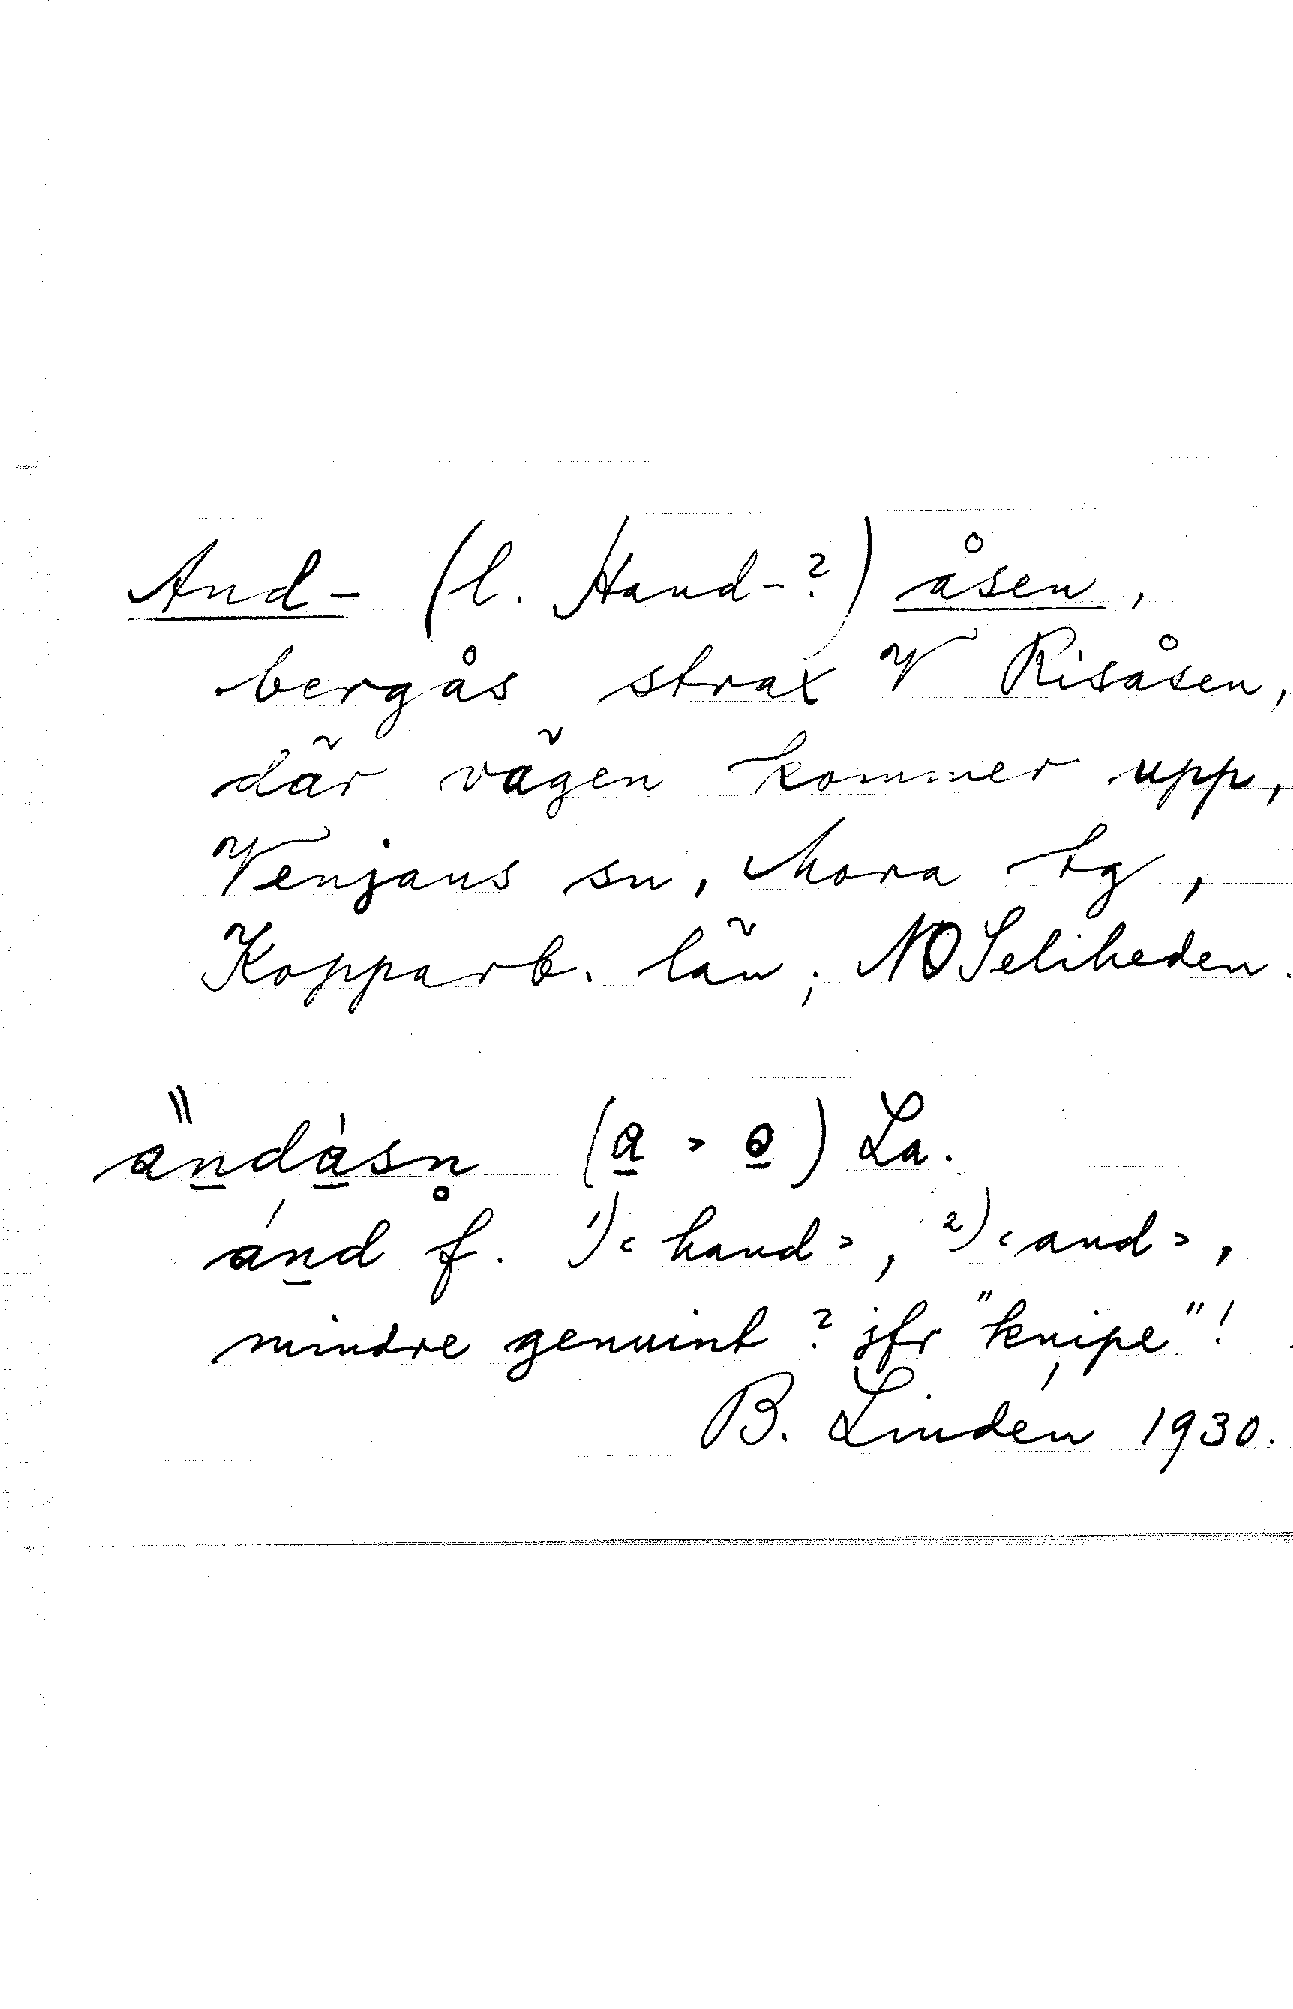 And- (l. Hand-?) åsen,
bergås strax V Risåsen,
där vägen kommer upp,
Venjans sn, Mora tg,
Kopparb. län; NO Seliheden.
(a > o) La.
ánd f. 1) < hand >, 2) < and >,
mindre genuint? jfr "knipe"!
B. Lindén 1930.